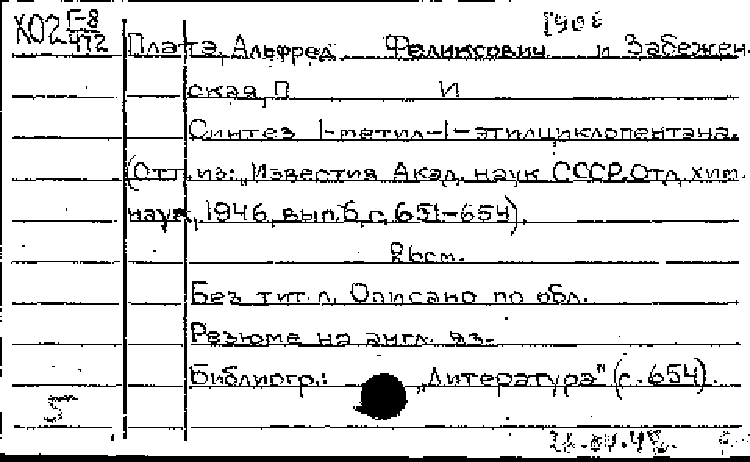 Х02 Г-8
472
1906
Платэ, Альфред Феликсович и Забежен-
ская, П И
Синтез 1-метил-1-этилциклопентана.
(Отт. из: „Известия Акад. наук СССР. Отд. хим.
наук, 1946, вып. 6, с. 651-654).
26 см.
Без тит. л. Описано по обл.
Резюме на англ. яз.
Библиогр.: „Литература" (с. 654).
5